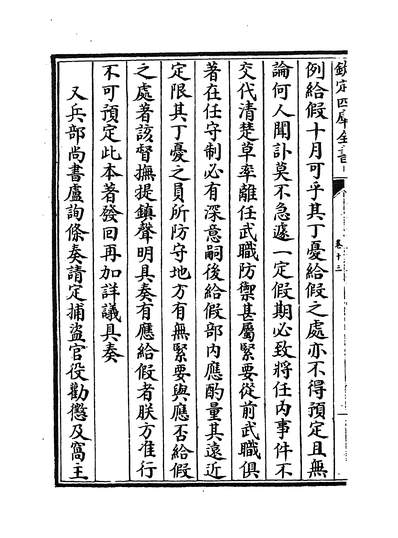 欽定四庫全書
卷十三
例給假十月可乎其丁憂給假之處亦不得預定且無
論何人聞訃莫不急遽一定假期必致將任內事件不
交代清楚草率離任武職防禦甚屬緊要從前武職俱
著在任守制必有深意嗣後給假部內應酌量其遠近
定限其丁憂之員所防守地方有無緊要與應否給假
之處著該督撫提鎮聲明具奏有應給假者朕方准行
不可預定此本著發回再加詳議具奏
又兵部尚書盧詢條奏請定捕盜官役勸懲及窩主